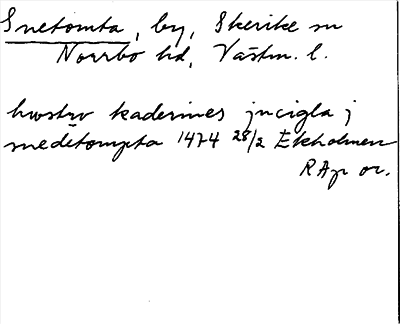 Snetomta, by, Skerike sn
Norrbo hd, Västm. l.
hwstrv kaderines jncigla j
snedetompta 1474 28/2 Ekholmen
RAp or.